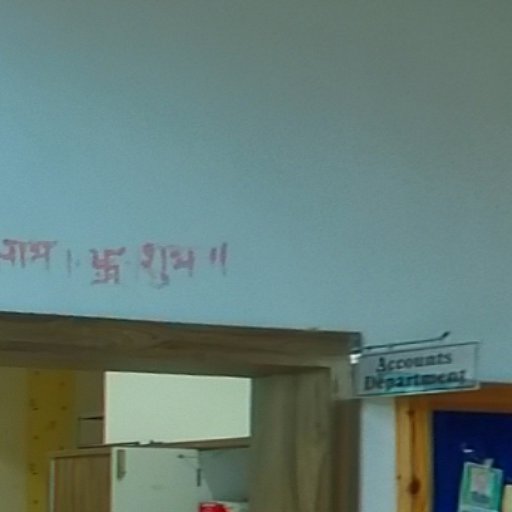 लाभ । 卐 शुभ ॥
Accounts
Department